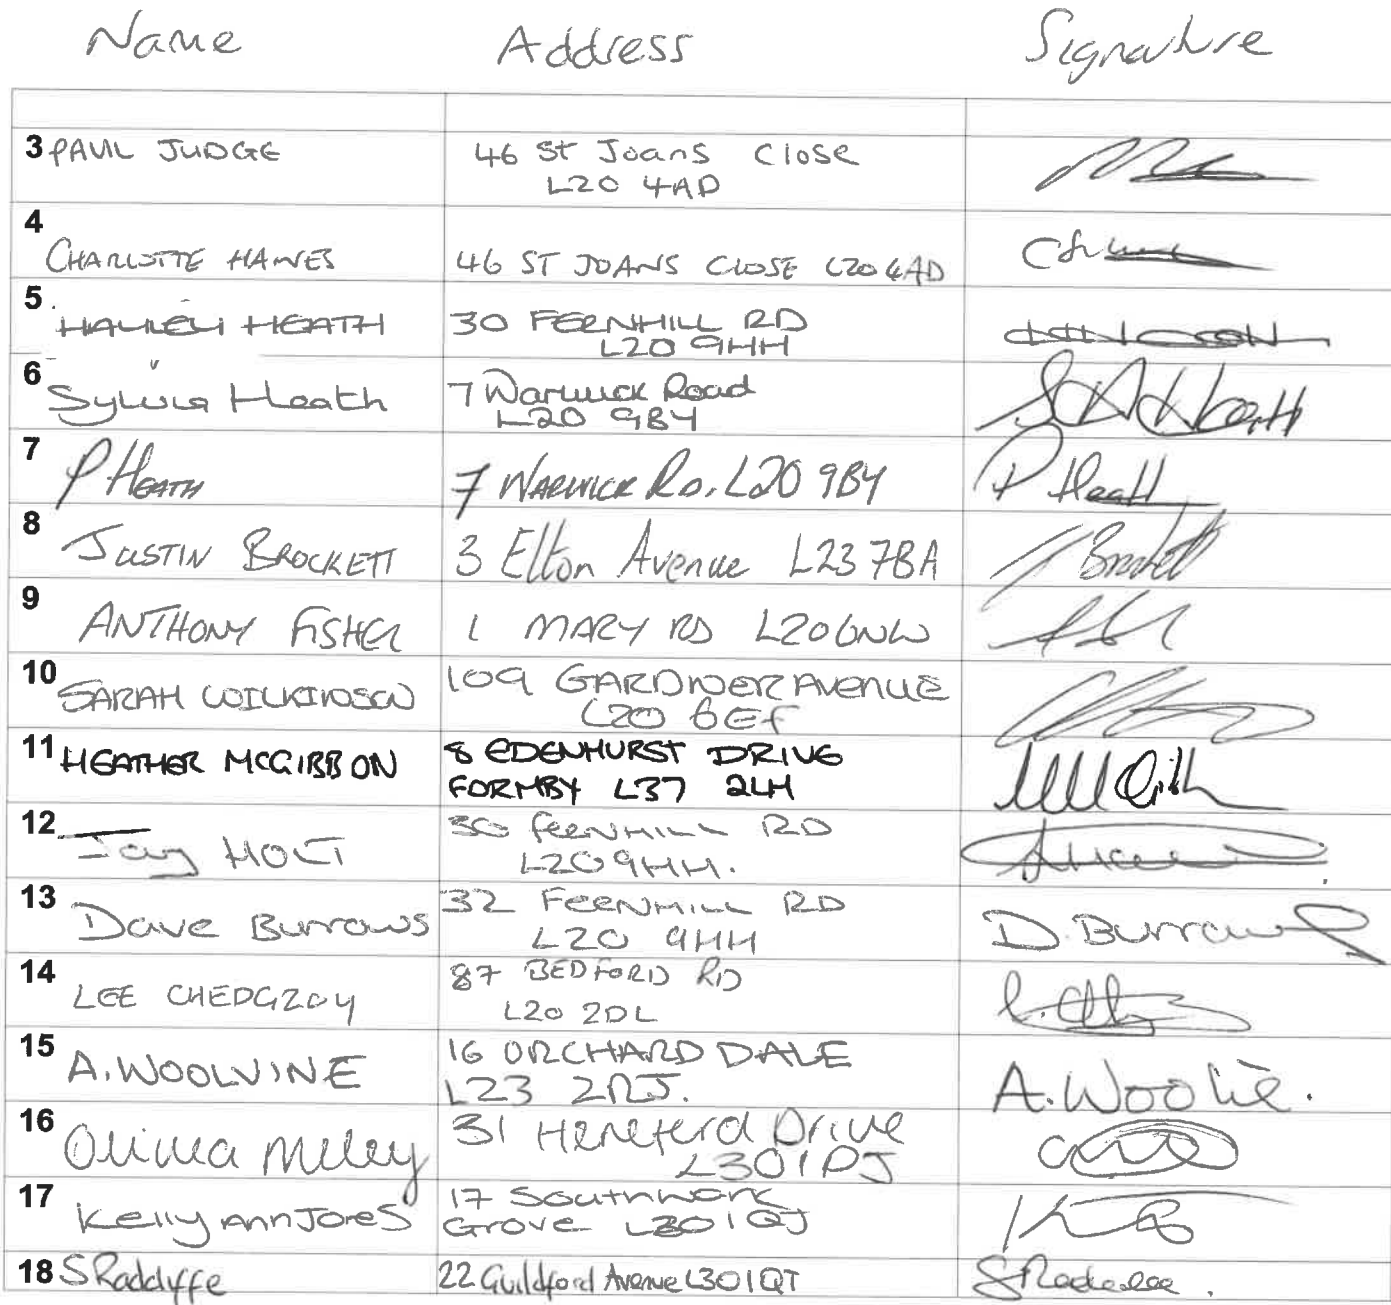 Name Address Signature
3 PAUL JUDGE 46 St Joans Close
L20 4AD
4
CHARLOTTE HAINES 46 ST JOANS CLOSE L20 4AD
5
HEATH 30 FERNHILL RD
L20 9HH
6
Sylvia Heath 7 Warwick Road
L20 9BY
S A Heath
7
P HEATH 7 WARWICK RD. L20 9BY P Heath
8
JUSTIN BROCKETT 3 Elton Avenue L23 7BA J Brockett
9
ANTHONY FISHER 1 MARY RD L20 6NW
10
SARAH WILKINSON 109 GARDNER AVENUE
L20 6EF
11 HEATHER MCGIBBON 8 EDENHURST DRIVE
FORMBY L37 2LH
12
Jay HOLT 30 FERNHILL RD
L20 9HH.
13
Dave Burrows 32 FERNHILL RD
L20 9HH
D. Burrows
14
LEE CHEDGZOY 87 BEDFORD RD
L20 2DL
15
A. WOOLVINE 16 ORCHARD DALE
L23 2RJ.
A. Woo
16
Olivia Miley 31 Hereford Drive
L30 1PJ
17
Kelly Ann Jones 17 Southwark
Grove L30 1QJ
18 S Radclyffe 22 Guildford Avenue L30 1QT